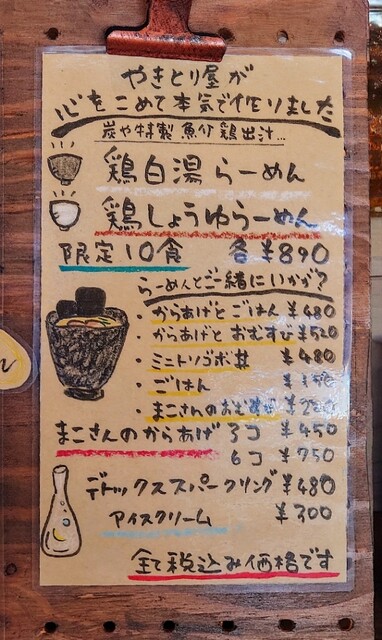 やきとり屋が
心をこめて本気で作りました
炭や特製 魚介 鶏出汁...
鶏白湯らーめん
鶏しょうゆらーめん
限定10食 各¥890
らーめんとご一緒にいかが?
・からあげとごはん ¥480
・からあげとおむすび ¥520
・ミニトリゴボ丼 ¥480
・ごはん
・まこさんの
まこさんのからあげ 3コ ¥450
6コ ¥750
デトックススパークリング ¥480
アイスクリーム ¥300
全て税込み価格です